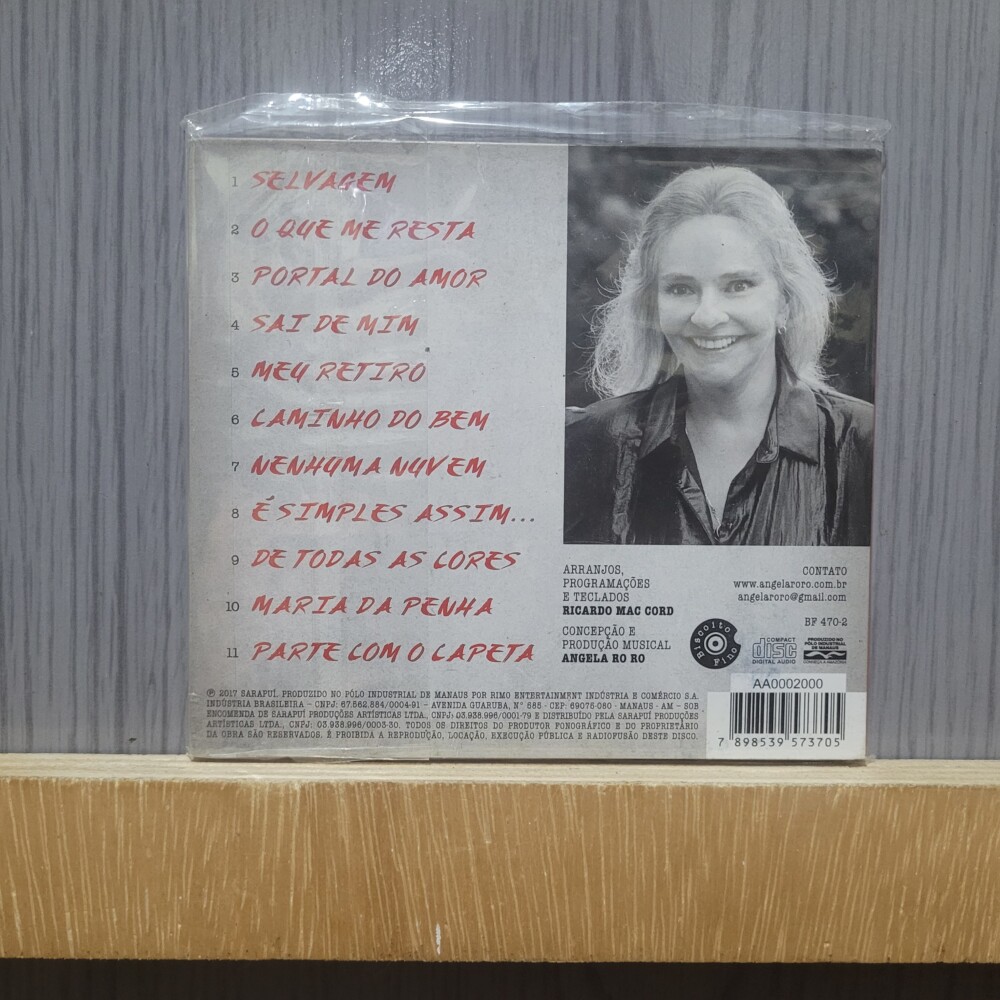 1 SELVAGEM
2 O QUE ME RESTA
3 PORTAL DO AMOR
4 SAI DE MIM
5 MEU RETIRO
6 CAMINHO DO BEM
7 NENHUMA NUVEM
8 É SIMPLES ASSIM...
9 DE TODAS AS CORES
10 MARIA DA PENHA
11 PARTE COM O CAPETA
ARRANJOS,
PROGRAMAÇÕES
E TECLADOS
RICARDO MAC CORD
CONCEPÇÃO E
PRODUÇÃO MUSICAL
ANGELA RO RO
CONTATO
www.angelaroro.com.br
angelaroro@gmail.com
BF 470-2
Biscoito Fino
COMPACT
disc
DIGITAL AUDIO
PRODUZIDO NO
PÓLO INDUSTRIAL
DE MANAUS
CONHEÇA A AMAZÔNIA
℗ 2017 SARAPUÍ. PRODUZIDO NO PÓLO INDUSTRIAL DE MANAUS POR RIMO ENTERTAINMENT INDÚSTRIA E COMÉRCIO S.A.
INDÚSTRIA BRASILEIRA - CNPJ: 67.562.884/0004-91 - AVENIDA GUARUBA, Nº 585 - CEP: 69075-080 - MANAUS - AM - SOB
ENCOMENDA DE SARAPUÍ PRODUÇÕES ARTÍSTICAS LTDA., CNPJ: 03.938.996/0001-79 E DISTRIBUÍDO PELA SARAPUÍ PRODUÇÕES
ARTÍSTICAS LTDA., CNPJ: 03.938.996/0003-30. TODOS OS DIREITOS DO PRODUTOR FONOGRÁFICO E DO PROPRIETÁRIO
DA OBRA SÃO RESERVADOS. É PROIBIDA A REPRODUÇÃO, LOCAÇÃO, EXECUÇÃO PÚBLICA E RADIOFUSÃO DESTE DISCO.
AA0002000
7 898539 573705